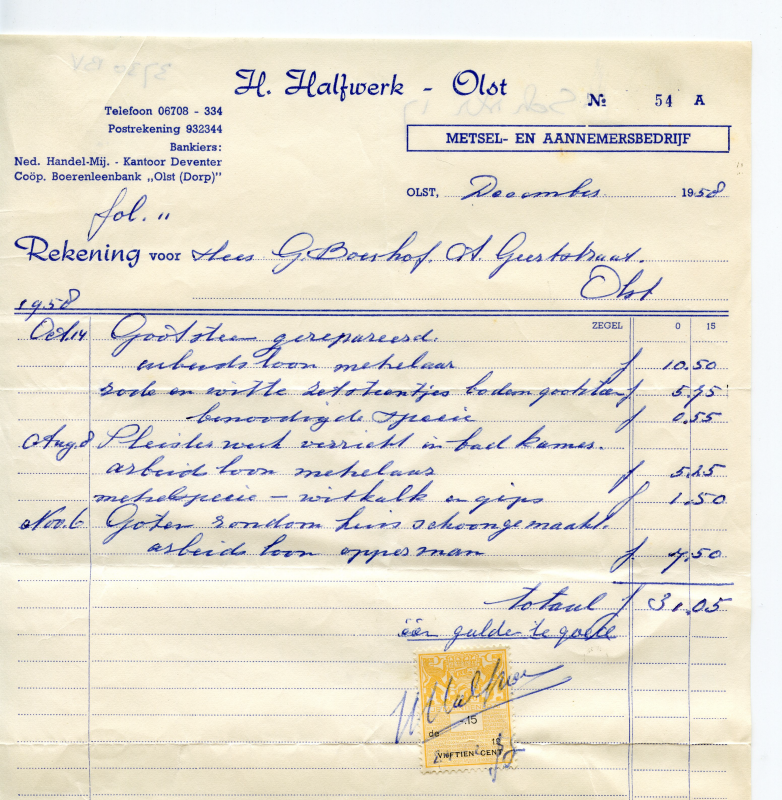 H. Halfwerk - Olst
No 54 A
Telefoon 06708 - 334
Postrekening 932344
Bankiers:
Ned. Handel-Mij. - Kantoor Deventer
Coöp. Boerenleenbank „Olst (Dorp)"
METSEL- EN AANNEMERSBEDRIJF
OLST, December 1958
fol. "
Rekening voor Heer G. Boerhof. A. Geertstraat.
Olst
1958
ZEGEL 0 15
Oct. 14 Gootsteen gerepareerd.
arbeidsloon metselaar f 10.50
rode en witte zetsteentjes bodem gootsteen f 5.75
benoodigde specie f 0.55
Aug. 8 Pleisterwerk verricht in badkamer.
arbeidsloon metselaar f 5.25
metselspecie - witkalk en gips f 1.50
Nov. 6 Goten rondom huis schoongemaakt.
arbeidsloon opperman f 7.50
totaal f 31.05
één gulden te goed
H. Halfwerk
.15
de 19
VIJFTIEN CENT